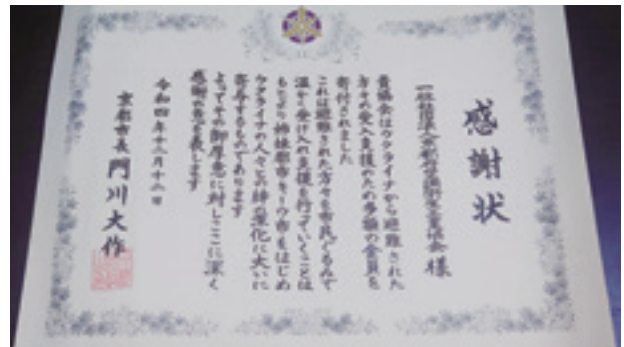 感謝状
様
貴協会はウクライナから避難された
方々の受入支援のため多額の金員を
寄付されました
これは避難された方々を市民ぐるみで
温かく受け入れ支援を行っていくことは
もとより姉妹都市キーウ市をはじめ
ウクライナの人々との絆の深化に大いに
寄与するものであります
よってその御厚意に対しここに深く
感謝の意を表します
令和四年十二月十二日
京都市長 門川大作